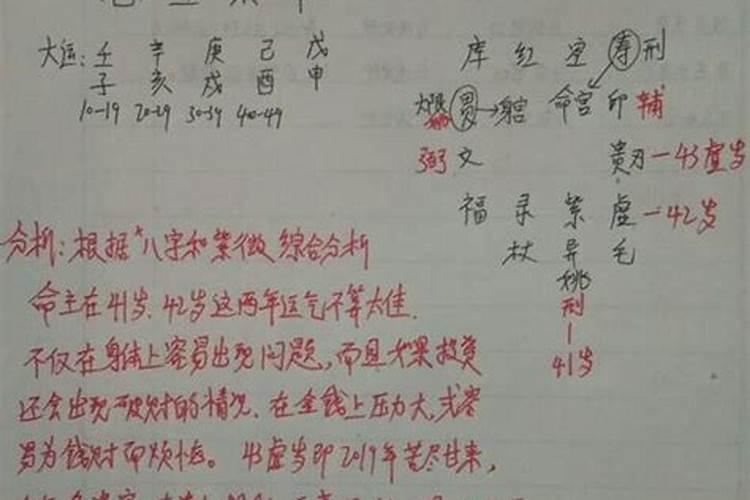 大运: 壬 辛 庚 己 戊
子 亥 戌 酉 申
10-19 20-29 30-39 40-49
库 红 空 寿 刑
大限 昌→ 命宫 印 辅
弼 文 贵刃—43虚岁
福 录 紫 虚—42岁
杖 异 毛
姚
刑
41岁
分析: 根据"八字和紫微 综合分析
命主在41岁、42岁这两年运气不算太佳.
不仅在身体上容易出现问题,而且如果投资
还会出现破财的情况. 在金钱上压力大,或容
易为钱财而烦恼。 43虚岁即2019年苦尽甘来,